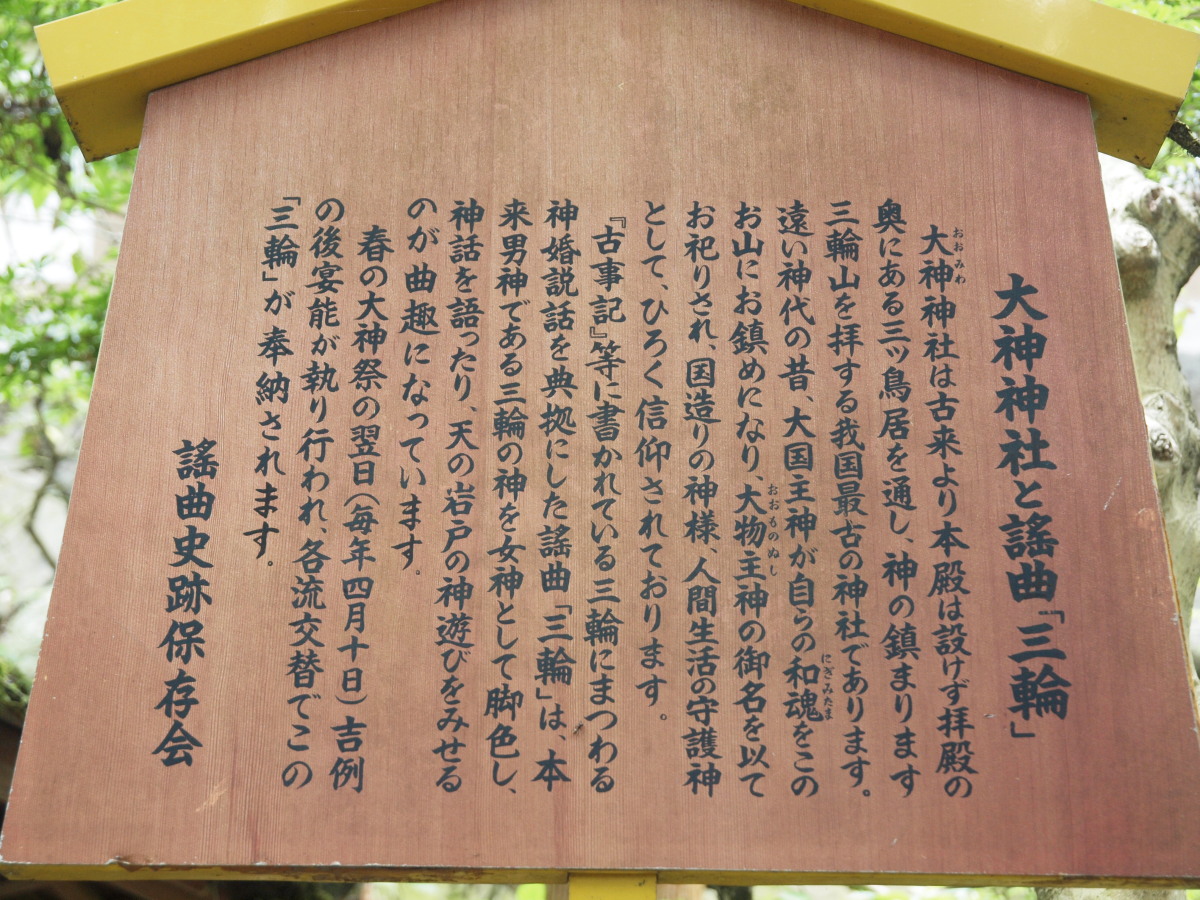 大神神社と謡曲「三輪」
大神神社は古来より本殿は設けず拝殿の
奥にある三ッ鳥居を通し、神の鎮まります
三輪山を拝する我国最古の神社であります。
遠い神代の昔、大国主神が自らの和魂をこの
お山にお鎮めになり、大物主神の御名を以て
お祀りされ、国造りの神様、人間生活の守護神
として、ひろく信仰されております。
『古事記』等に書かれている三輪にまつわる
神婚説話を典拠にした謡曲「三輪」は、本
来男神である三輪の神を女神として脚色し、
神話を語ったり、天の岩戸の神遊びをみせる
のが曲趣になっています。
春の大神祭の翌日(毎年四月十日)吉例
の後宴能が執り行われ、各流交替でこの
「三輪」が奉納されます。
謡曲史跡保存会
おおみわ
にぎみたま
おおものぬし